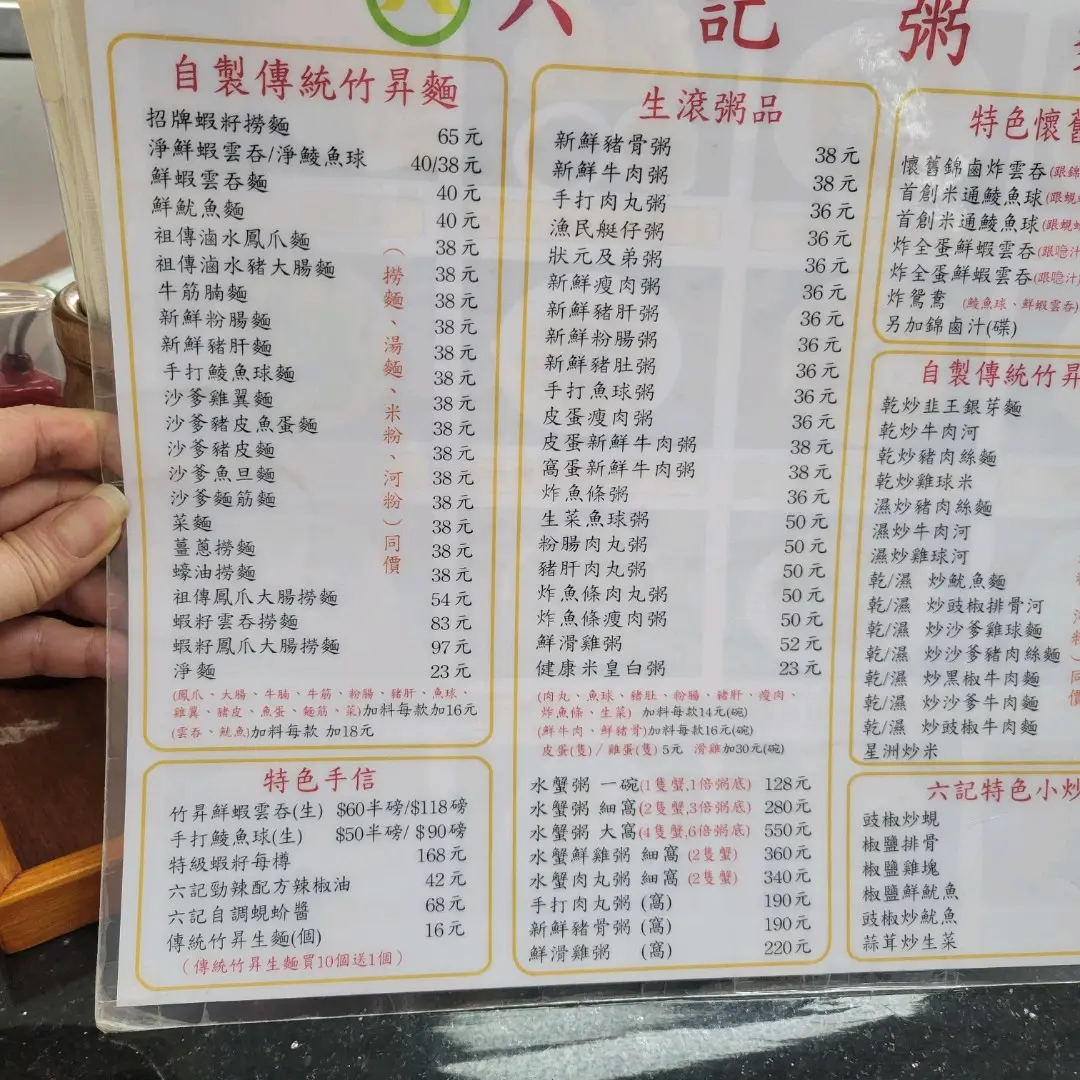 六記粥
自製傳統竹昇麵
招牌蝦籽撈麵 65元
淨鮮蝦雲吞/淨鯪魚球 40/38元
鮮蝦雲吞麵 40元
鮮魷魚麵 40元
祖傳滷水鳳爪麵 38元
祖傳滷水豬大腸麵 38元
牛筋腩麵 38元
新鮮粉腸麵 38元
新鮮豬肝麵 38元
手打鯪魚球麵 38元
沙爹雞翼麵 38元
沙爹豬皮魚蛋麵 38元
沙爹豬皮麵 38元
沙爹魚旦麵 38元
沙爹麵筋麵 38元
菜麵 38元
薑蔥撈麵 38元
蠔油撈麵 38元
祖傳鳳爪大腸撈麵 54元
蝦籽雲吞撈麵 83元
蝦籽鳳爪大腸撈麵 97元
淨麵 23元
(撈麵、湯麵、米粉、河粉)同價
(鳳爪、大腸、牛腩、牛筋、粉腸、豬肝、魚球、
雞翼、豬皮、魚蛋、麵筋、菜)加料每款加16元
(雲吞、魷魚)加料每款 加18元
特色手信
竹昇鮮蝦雲吞(生) $60半磅/$118磅
手打鯪魚球(生) $50半磅/ $90磅
特級蝦籽每樽 168元
六記勁辣配方辣椒油 42元
六記自調蜆蚧醬 68元
傳統竹昇生麵(個) 16元
(傳統竹昇生麵買10個送1個)
生滾粥品
新鮮豬骨粥 38元
新鮮牛肉粥 38元
手打肉丸粥 36元
漁民艇仔粥 36元
狀元及弟粥 36元
新鮮瘦肉粥 36元
新鮮豬肝粥 36元
新鮮粉腸粥 36元
新鮮豬肚粥 36元
手打魚球粥 36元
皮蛋瘦肉粥 36元
皮蛋新鮮牛肉粥 38元
窩蛋新鮮牛肉粥 38元
炸魚條粥 36元
生菜魚球粥 50元
粉腸肉丸粥 50元
豬肝肉丸粥 50元
炸魚條肉丸粥 50元
炸魚條瘦肉粥 50元
鮮滑雞粥 52元
健康米皇白粥 23元
(肉丸、魚球、豬肚、粉腸、豬肝、瘦肉、
炸魚條、生菜) 加料每款14元(碗)
(鮮牛肉、鮮豬骨)加料每款16元(碗)
皮蛋(隻) / 雞蛋(隻) 5元 滑雞加30元(碗)
水蟹粥 一碗(1隻蟹,1倍粥底) 128元
水蟹粥 細窩(2隻蟹,3倍粥底) 280元
水蟹粥 大窩(4隻蟹,6倍粥底) 550元
水蟹鮮雞粥 細窩 (2隻蟹) 360元
水蟹肉丸粥 細窩 (2隻蟹) 340元
手打肉丸粥 (窩) 190元
新鮮豬骨粥 (窩) 190元
鮮滑雞粥 (窩) 220元
特色懷舊
懷舊錦鹵炸雲吞(跟錦
首創米通鯪魚球(跟蜆
首創米通鯪魚球(跟蜆
炸全蛋鮮蝦雲吞(跟喼汁
炸全蛋鮮蝦雲吞(跟喼汁
炸鴛鴦 (鯪魚球、鮮蝦雲吞)
另加錦鹵汁(碟)
自製傳統竹昇
乾炒韭王銀芽麵
乾炒牛肉河
乾炒豬肉絲麵
乾炒雞球米
濕炒豬肉絲麵
濕炒牛肉河
濕炒雞球河
乾/濕 炒魷魚麵
乾/濕 炒豉椒排骨河
乾/濕 炒沙爹雞球麵
乾/濕 炒沙爹豬肉絲麵
乾/濕 炒黑椒牛肉麵
乾/濕 炒沙爹牛肉麵
乾/濕 炒豉椒牛肉麵
星洲炒米
六記特色小炒
豉椒炒蜆
椒鹽排骨
椒鹽雞塊
椒鹽鮮魷魚
豉椒炒魷魚
蒜茸炒生菜